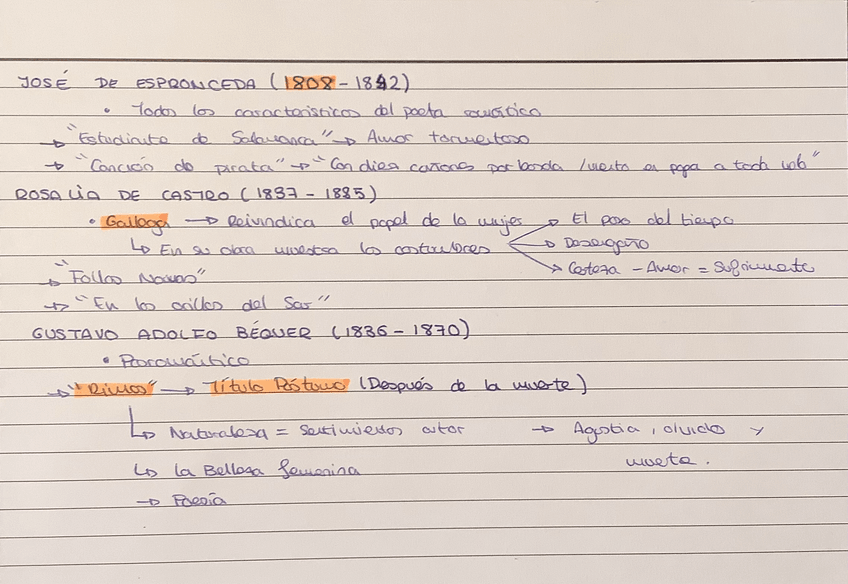 JOSÉ DE ESPRONCEDA (1808-1842)
• Todos los característicos del poeta romántico
→ "Estudiante de Salamanca" → Amor tormentoso
→ "Canción de pirata" → "Con diez cañones por banda / viento en popa a toda vela"
ROSALÍA DE CASTRO (1837-1885)
• Gallega → Reivindica el papel de la mujer → El paso del tiempo
↳ En su obra muestra las costumbres → Desengaño
→ "Follas Novas" → Certeza - Amor = Sufrimiento
→ "En las orillas del Sar"
GUSTAVO ADOLFO BÉQUER (1836-1870)
• Posromántico
→ "Rimas" → Título Póstumo (Después de la muerte)
↳ Naturaleza = Sentimientos autor → Agustia, olvido y
↳ la Belleza femenina muerte.
→ Poesía